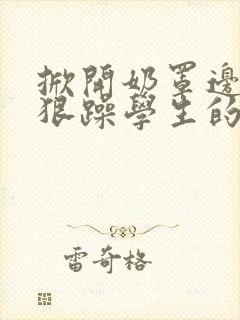 掀開奶罩邊
狠躁學生的
雷奇格